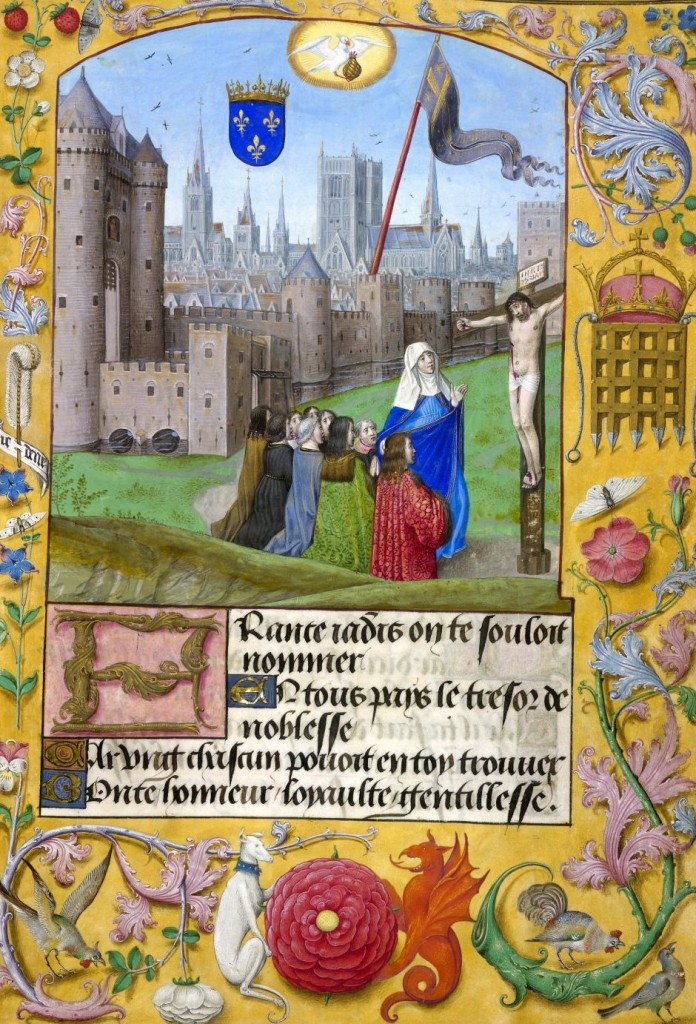 FRance iadis on te souloit
nommer
EN tous pays le tresor de
noblesse
CAr vng chascun pouoit en toy trouuer
BOnte honneur / loyaulte / gentillesse.